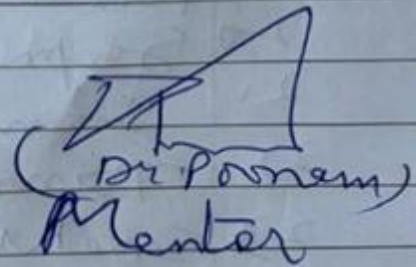 (Dr. Poonam)
Mentor